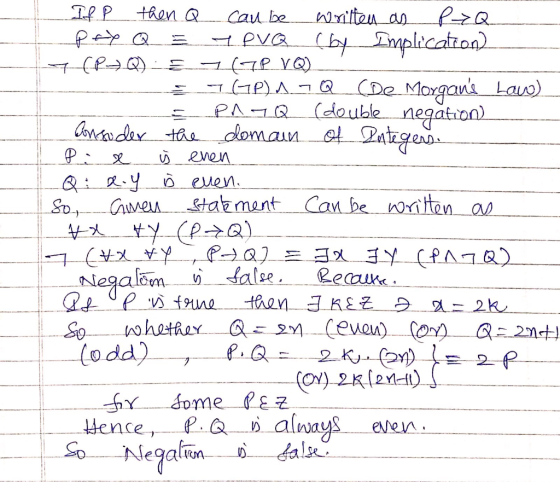 If P then Q can be written as P→Q
P↔Q ≡ ¬P∨Q (by Implication)
¬(P→Q) ≡ ¬(¬P∨Q)
≡ ¬(¬P)∧¬Q (De Morgan's Law)
≡ P∧¬Q (double negation)
Consider the domain of Integers.
P: x is even
Q: x.y is even.
So, Given statement can be written as
∀x ∀y (P→Q)
¬(∀x ∀y, P→Q) ≡ ∃x ∃y (P∧¬Q)
Negation is false. Because.
If P is true then ∃ K∈Z ∋ x = 2K
So whether Q = 2n (even) (or) Q = 2n+1
(odd), P.Q = 2K.(2n) } = 2P
(or) 2K(2n+1) }
for some P∈Z
Hence, P.Q is always even.
So Negation is false.